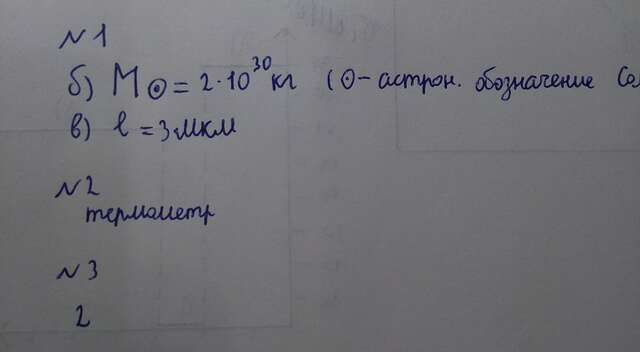 №1
б) M☉ = 2·10³⁰ кг (☉ – астрон. обозначение
в) l = 3 мкм
№2
термометр
№3
2